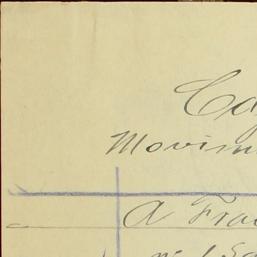 Ca
Movim
A Fra